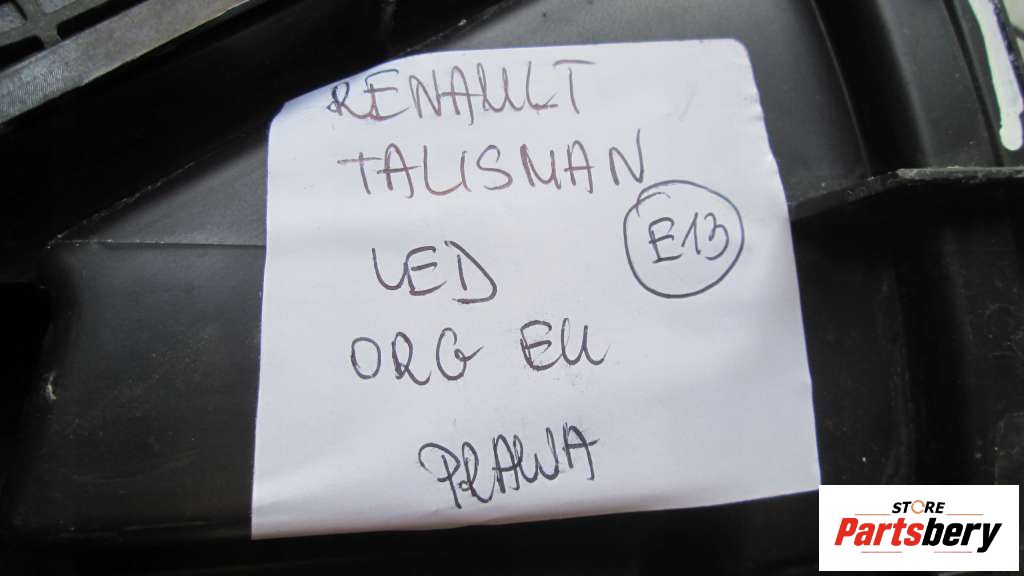 RENAULT
TALISMAN
E13
LED
ORG EU
PRAWA
STORE
Partsbery